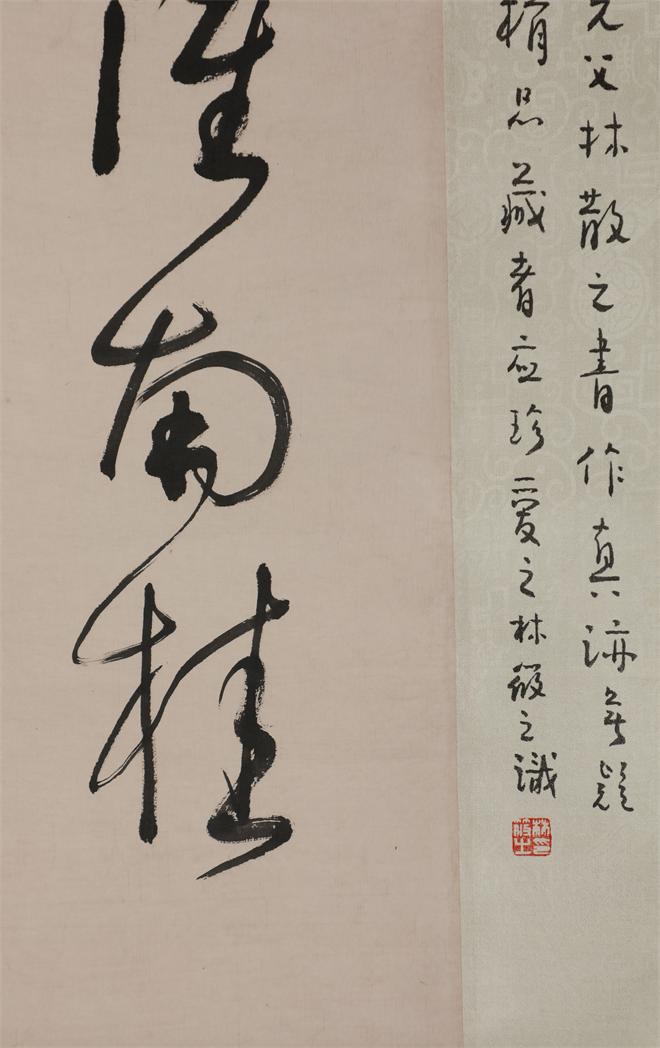 先父林散之書作真迹无疑
精品藏者应珍愛之林筱之識
淮南桂